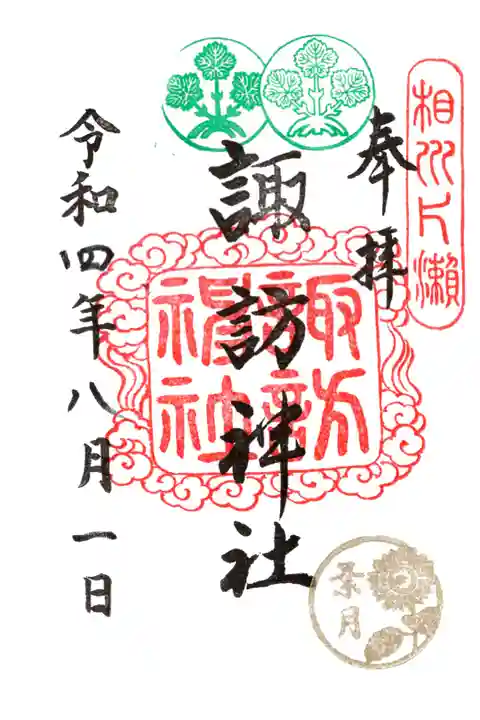 相州片瀬
奉拝
諏訪神社
諏訪神社
令和四年八月一日
葉月